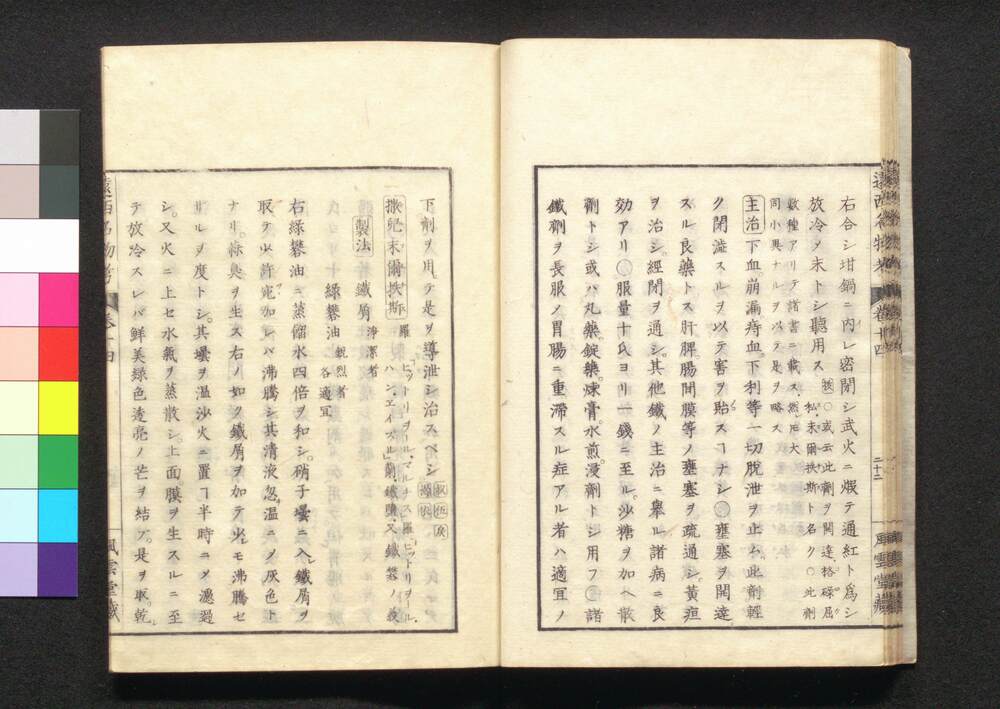 遠西名物考 卷廿四 二十二 風雲堂藏
右合シ坩鍋ニ内レ密閉シ武火ニ煆テ通紅ト爲シ
放冷タ末トシ聽用ス ○或云此劑ヲ開達格碌屈
私・末爾挾斯ト名ク○此劑
數種アリテ諸書ニ載ス・然𪜈大
同小異ナルヲ以テ是ヲ略ス
主治 下血。崩漏。痔血。下利等一切脱泄ヲ止ム。此劑輕
ク閉澁スルヲ以テ害ヲ貽スヿナシ○壅塞ヲ開達
スル良藥トス肝脾腸間膜等ノ壅塞ヲ疏通シ。黄疸
ヲ治シ。經閉ヲ通シ。其他鐵ノ主治ニ擧ル諸病ニ良
効アリ○服量十氏ヨリ一錢ニ至ル。沙糖ヲ加ヘ散
劑トシ或ハ丸藥。錠藥。煉膏。水煎。浸劑トシ用フ○諸
鐵劑ヲ長服ノ胃腸ニ重滯スル症アル者ハ適宜ノ
下劑ヲ用テ是ヲ導泄シ治スベシ
撒兒末爾挾斯
ハン・エイズル」蘭鐵鹽又鐵礬ノ義
製法 鐵屑 淨潔者 綠礬油 親烈者 各適宜
右綠礬油ニ蒸餾水四倍ヲ和シ。硝子壜ニ入レ鐵屑ヲ
取テ少許宛加レバ沸騰シ其清液忽温ニメ灰色ト
ナリ。𮖐臭ヲ生ス右ノ如ク鐵屑ヲ加テ少モ沸騰セ
サルヲ度トシ。其壜ヲ温沙火ニ置ヿ半時ニメ濾過
シ。又火ニ上セ水氣ヲ蒸散シ。上面膜ヲ生スルニ至
テ放冷スレバ鮮美綠色透亮ノ芒ヲ結フ。是ヲ取乾